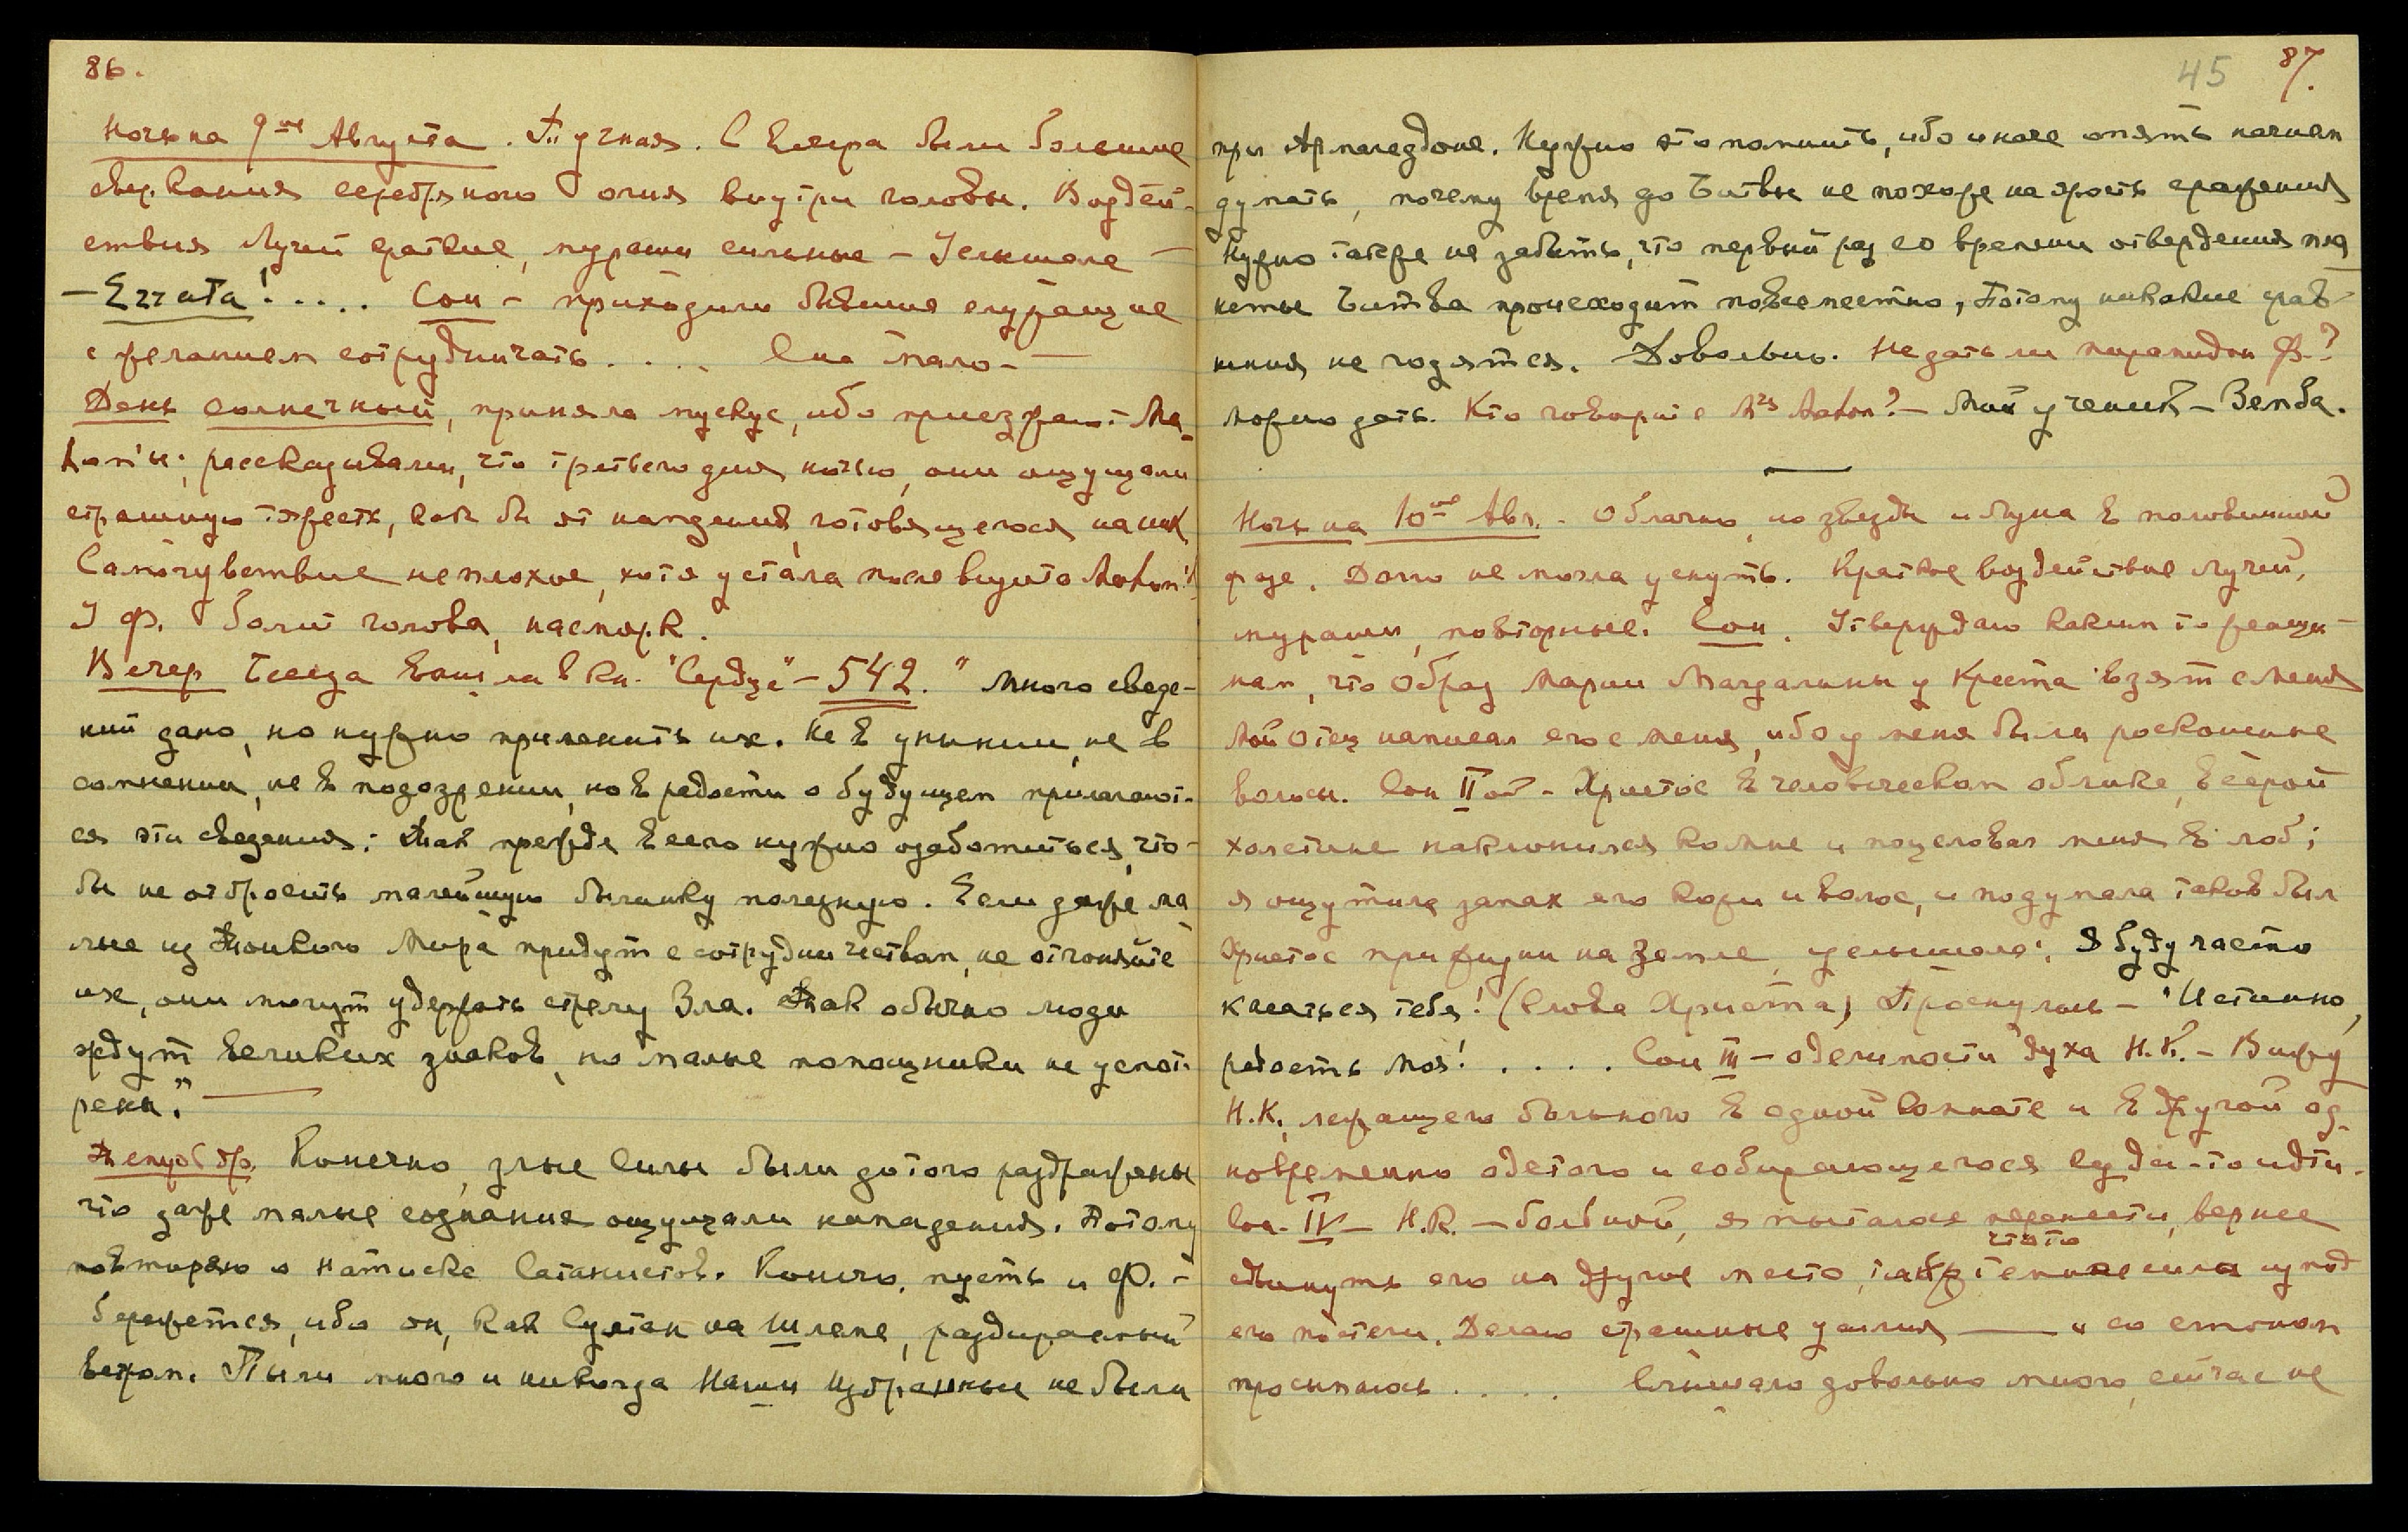 86.
Ночь на 9ое Августа. Тучная. С вечера были большие
сверкания серебряного огня внутри головы. Воздей-
ствия Лучей краткие, мураши сильные – Услышала –
– Errata! . . . . Сон – приходили бывшие служащие
с желанием сотрудничать . . . . Сна мало –
День солнечный, приняла мускус, ибо приезжают Ма-
hon'ы; рассказывали, что третьего дня ночью, они ощущали
страшную тяжесть, как бы от нападения, готовящегося на них
Самочувствие неплохое, хотя устала после визита Mahon'
У Ф. болит голова, насморк.
Вечер Беседа вошла в кн. "Сердце" – 542. " Много сведе-
ний дано, но нужно применить их. Не в унынии, не в
сомнении, не в подозрении, но в радости о будущем прилагают-
ся эти сведения. Так прежде всего нужно озаботиться, что-
бы не отбросить малейшую былинку полезную. Если даже ма-
лые из Тонкого Мира придут с сотрудничеством, не отгоняйте
их, они могут удержать стрелу Зла. Так обычно люди
ждут великих знаков, но малые помощники не усмот-
рены."
Конечно, злые силы были до того раздражены
что даже малые сознания ощущали нападения. Потому
повторяю о натиске Сатанистов. Конечно, пусть и Ф. –
бережется, ибо он, как Султан на Шлеме, раздираемый
вихрем. Пыли много и никогда Наши Избранные не были
45 87.
при Армагеддоне. Нужно это помнить, ибо иначе опять начнем
думать, почему время до Битвы не похоже на ярость сражения
Нужно также не забыть, что первый раз со времени отвердения пла
неты Битва происходит повсеместно, Потому никакие срав-
нения не годятся. Довольно. Не дать ли пирамидон Ф.?
Можно дать. Кто говорит с Mrs Mahon? – Мой ученик –Земба.
Ночь на 10ое Авг. – Облачно, но звезды и Луна в половинной
фазе. Долго не могла уснуть. Краткое воздействие лучей,
мураши, повторные. Сон. Утверждаю каким то женщи-
нам, что Образ Марии Магдалины у Креста взят с меня
Мой отец написал его с меня, ибо у меня были роскошные
волосы. Сон II ой – Христос в человеческом облике, в серой
холстине наклонился ко мне и поцеловал меня в лоб;
я ощутила запах его кожи и волос, и подумала таков был
Христос при жизни на Земле, услышала: Я буду часто
касаться тебя! (Слова Христа) Проснулась – "Истинно,
радость моя! . . . . . Сон III – о делимости духа Н.К. – Вижу
Н.К. лежащего больного в одной комнате и в другой од-
новременно одетого и собирающегося куда-то идти.
Сон IV – Н.К. – больной, я пытаюсь перенести, вернее
сдвинуть его на другое место,
его постели. Делаю страшные усилия ——— и со стоном
просыпаюсь . . . . Слышала довольно много, сейчас не